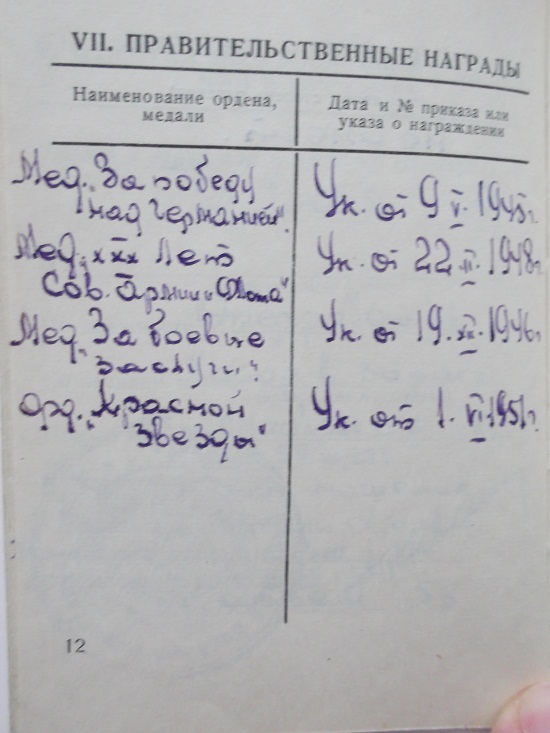 VII. ПРАВИТЕЛЬСТВЕННЫЕ НАГРАДЫ
Наименование ордена,
медали
Дата и № приказа или
указа о награждении
Мед. „За победу
над Германией“.
Ук. от 9 V. 1945г.
Мед. „ххх лет
Сов. Армии и Флота“
Ук. от 22 II. 1948г.
Мед. „За боевые
заслуги“
Ук. от 19. XI. 1946г.
орд. „Красной
Звезды“
Ук. от 1. VI 1951г.
12